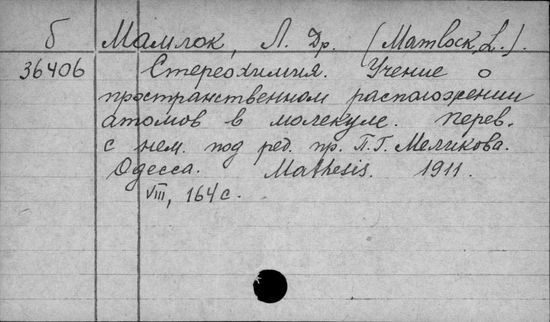 б Мамлок, Л. Др. (Mamlock, L.).
36406 Стереохимия. Учение о
пространственном расположении
атомов в молекуле. Перев.
с нем. под ред. пр. П.Г. Меликова.
Одесса. Mathesis. 1911.
VIII, 164 с.